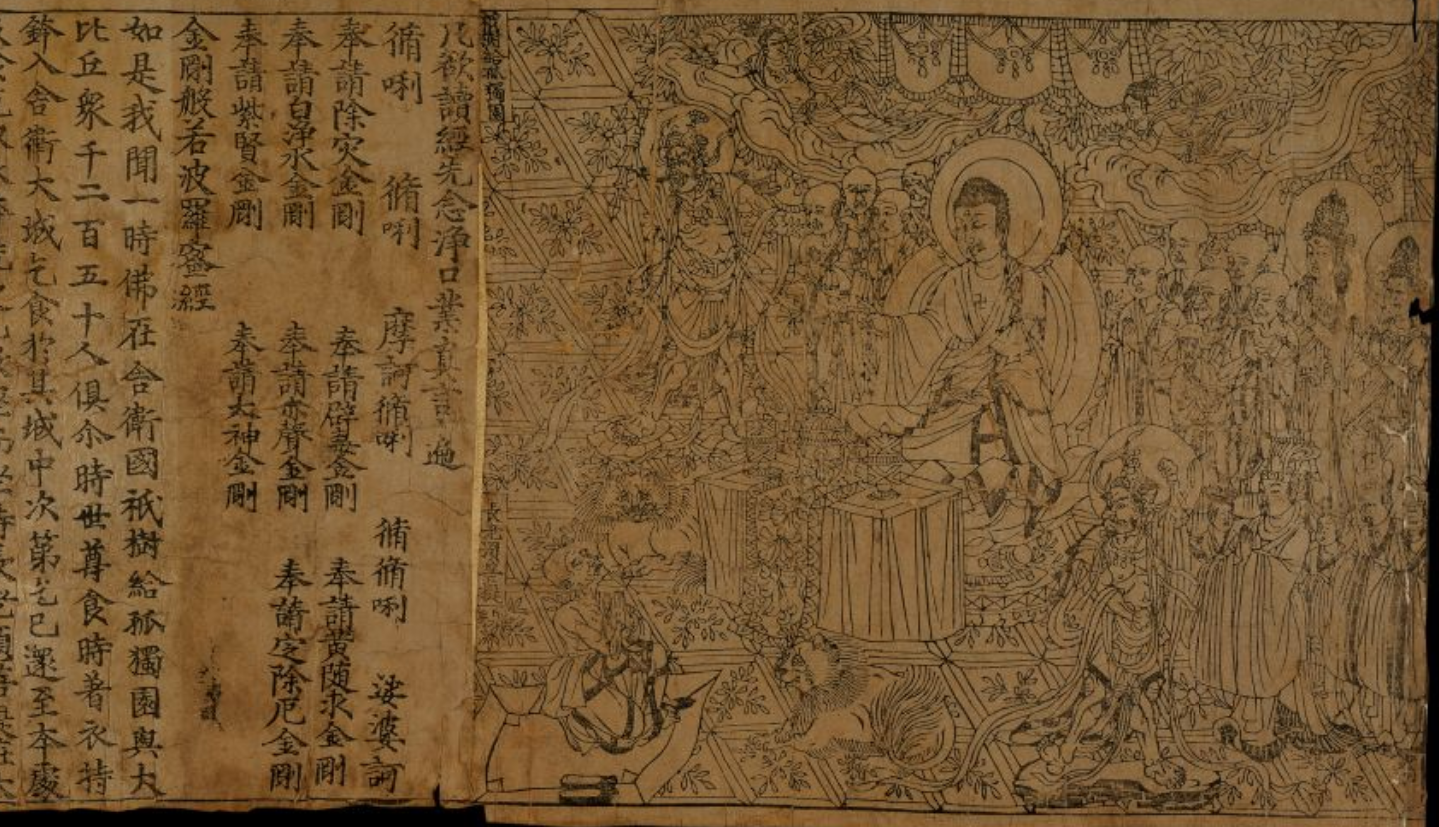 祇樹給孤獨園
長老須菩提
凡欲讀經先念淨口業真言遍
脩唎 脩唎 摩訶脩唎 脩脩唎 娑婆訶
奉請除灾金剛 奉請辟毒金剛 奉請黃随求金剛
奉請白淨水金剛 奉請赤聲金剛 奉請定除厄金剛
奉請紫賢金剛 奉請大神金剛
金剛般若波羅蜜經
如是我聞一時佛在舍衛國祇樹給孤獨園與大
比丘衆千二百五十人俱尒時世尊食時著衣持
鉢入舍衛大城乞食於其城中次第乞已還至本處